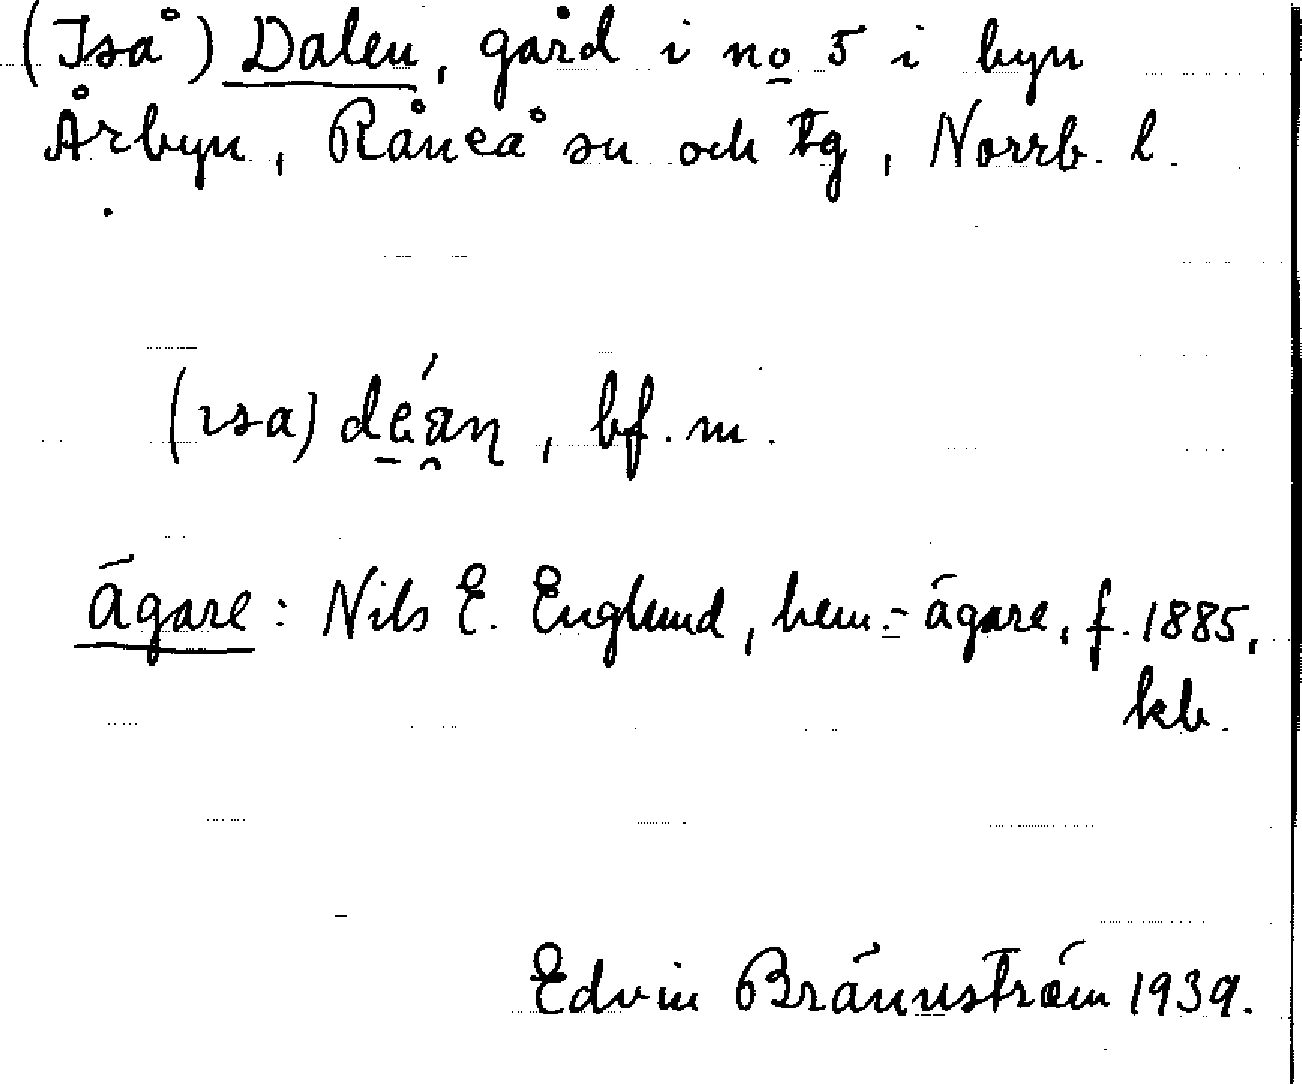 (Iså) Dalen, gård i no 5 i byn
Årbyn, Råneå sn och tg, Norrb. l.
(ısa) , bf. m.
ägare: Nils E. Englund, hem.-ägare, f. 1885,
kb.
Edvin Brännström 1939.